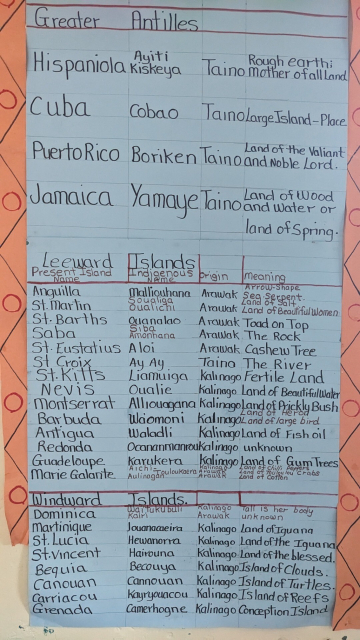 Greater Antilles
Hispaniola Ayiti Kiskeya Taino Rough earth: mother of all Land
Cuba Cobao Taino Large Island-Place
Puerto Rico Boriken Taino Land of the Valiant and Noble Lord.
Jamaica Yamaye Taino Land of Wood and Water or land of Spring.
Leeward Islands
Present Island Name Indigenous Name Origin meaning
Anguilla Malliouhana Arawak Arrow-Shape Sea Serpent
St. Martin Soualiga Oualichi Arawak Land of Salt Land of Beautiful Women
St. Barths Ouanalao Arawak Toad on Top
Saba Siba Amonhana Arawak The Rock
St. Eustatius Aloi Arawak Cashew Tree
St Croix Ay Ay Taino The River
St. Kitts Liamuiga Kalinago Fertile Land
Nevis Oualie Kalinago Land of Beautiful Water
Montserrat Alliouagana Kalinago Land of Prickly Bush
Barbuda Wiomoni Kalinago Land of Herbs Land of large bird
Antigua Waladli Kalinago Land of Fish oil
Redonda Kalinago unknown
Guadeloupe Karukera Kalinago Land of Gum Trees
Marie Galante Aichi Touloukaera Aulinagan Kalinago Arawak
Windward Islands.
Dominica Waitukubuli Kairi Kalinago Arawak Tall is her body unknown
Martinique Jouanacaeira Kalinago Land of Iguana
St. Lucia Hewanorra Kalinago Land of the Iguana
St. Vincent Hairouna Kalinago Land of the blessed.
Bequia Becouya Kalinago Island of Clouds.
Canouan Cannouan Kalinago Island of Turtles.
Carriacou Kayryouacou Kalinago Island of Reefs
Grenada Camerhogne Kalinago Conception Island